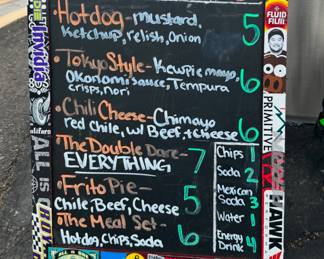 • Hotdog - mustard, 5
ketchup, relish, Onion
• Tokyo Style - Kewpie mayo, 6
Okonomi sauce, Tempura
crisps, nori
• Chili Cheese - Chimayo 6
red chile, w/ Beef, + cheese
• The Double Dare - 7
EVERYTHING
• Frito Pie - 5
Chile, Beef, Cheese
• The Meal Set - 6
Hotdog, Chips, Soda
Chips 1
Soda 2
Mexican
Soda 3
Water 1
Energy
Drink 4
Invidia
ALL IS
FLUID
FILM
PRIMITIVE
HAWK